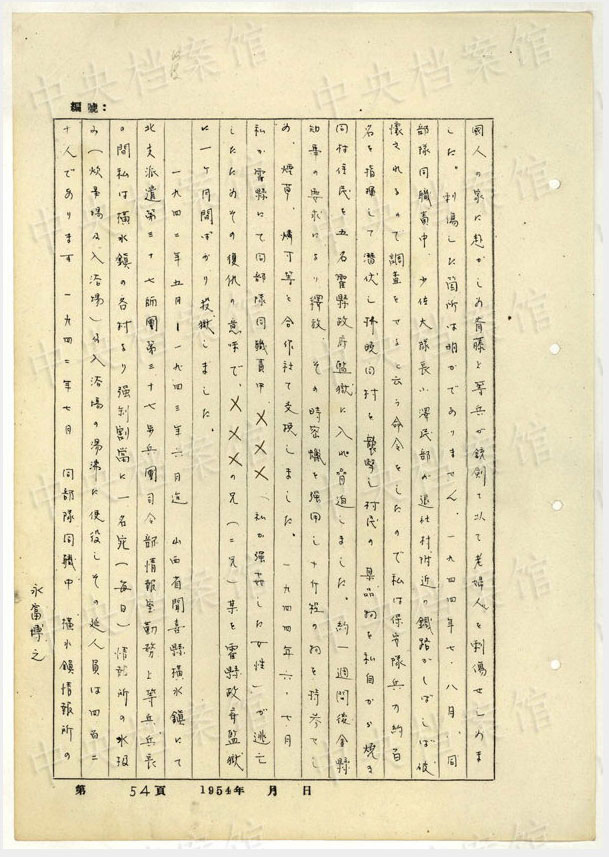 編號：
國人の家に赴かしめ斉藤上等兵が銃剣を以て老婦人を刺傷せしめま
した。刺傷した箇所は明かでありません。一九四四年七、八月、同
部隊同職責中、少佐大隊長小澤民部が退社村附近の鐵路がしばしば破
壊されるので調査をせよと云う命令をしたので私は保安隊兵の約百
名を指揮して潜伏し拂曉同村を襲撃し村民の某品物を私自から焼き
同村住民を五名霍縣政府監獄に入れ脅迫しました。約一週間後金縣
知事の要求により釋放、その時密蠟を強用し十斤程の物を持参てし
め、煙草、燐寸等と合作社で交換しました。一九四四年六、七月
私が霍縣にて同部隊同職責中、×××（私が強姦した女性）が逃亡
したためその復仇の意味で、×××の兄（二兄）某を霍縣政府監獄
に一ヶ月間ばかり投獄しました。
一九四二年五月－一九四三年六月迄 山西省聞喜縣橫水鎮にて
北支派遣第三十七師團第三十七歩兵團司令部情報室勤務上等兵兵長
の間私は橫水鎮の各村より强制割當に一名宛（毎日）情報所の水汲
み（炊事場及入浴場）及入浴場の湯沸に使役しその延人員は四百二
十人であります 一九四二年七月 同部隊同職中、橫水鎮情報所の
永富博之
第 54頁 1954年 月 日